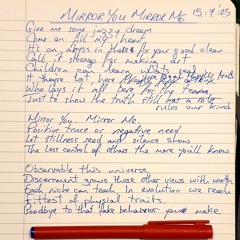 Mirror You Mirror Me 15/7/25
Give me some jazzy dream
Come on fill my head
It's an abyss in there for your good clean
Call it strange for making art
Children can learn
It they're lost here
Who lays it all bare for my team
Just to show the truth still has a role
rules our kind
Mirror You Mirror Me.
Positive trace or negative need
Let stillness read and silence show
The less control of others the more you'll know
Observable this universe
Discernment grows those other views with worth
Each niche can teach. In evolution we reach
Fittest of physical traits.
Goodbye to that fake behaviour you make.